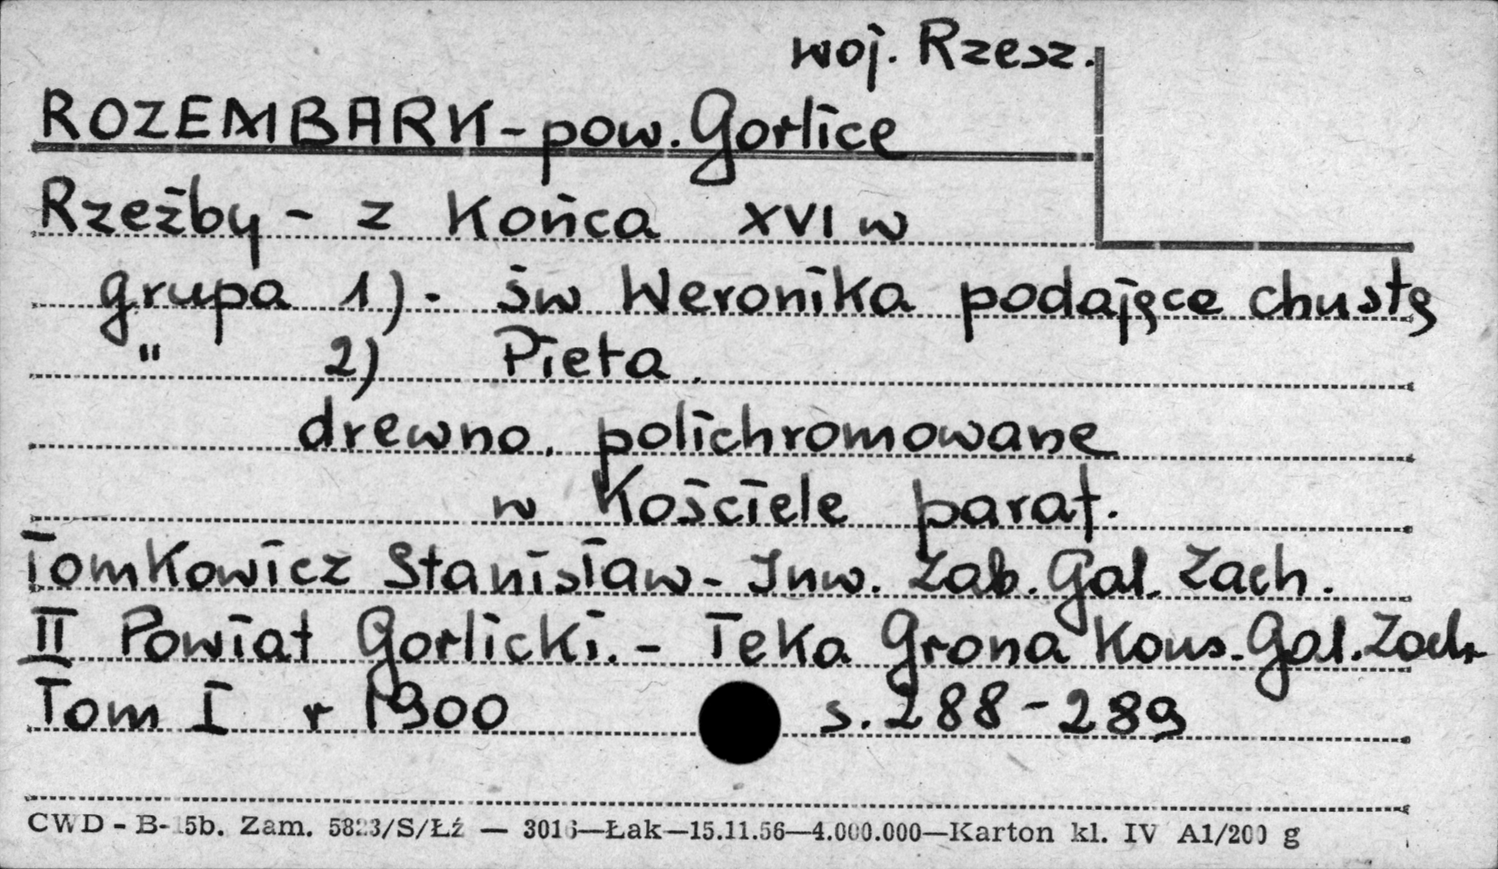 woj. Rzesz.
ROZEMBARK - pow. Gorlice
Rzeźby - z Końca XVI w
grupa 1) - św Weronika podające chustę
" 2) Pieta.
drewno, polichromowane
w Kościele paraf.
Tomkowicz Stanisław - Inw. Zab. Gal. Zach.
II Powiat Gorlicki. - Teka Grona Kons. Gal. Zach.
Tom I r 1900 s. 288-289
CWD - B- 5b. Zam. 5823/S/Łź — 3016—Łak—15.11.56—4.000.000—Karton kl. IV A1/200 g